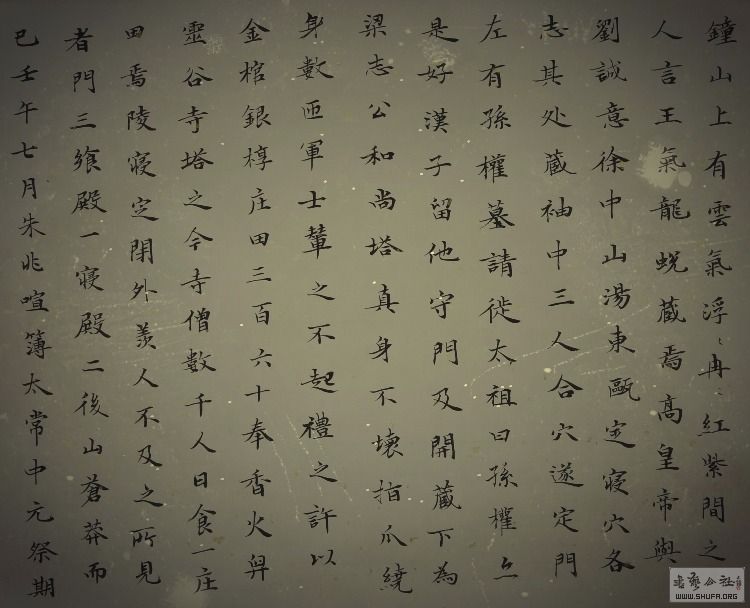 鐘山上有雲氣浮〻冉〻紅紫間之
人言王氣龍蛻蔵焉高皇帝與
劉誠意徐中山湯東甌定寢穴各
志其处蔵袖中三人合穴遂定門
左有孫權墓請徙太祖曰孫權亦
是好漢子留他守門及開蔵下為
梁志公和尚塔真身不壞指爪繞
身數匝軍士輦之不起禮之許以
金棺銀椁庄田三百六十奉香火舁
靈谷寺塔之今寺僧數千人日食一庄
田焉陵寝定閉外羨人不及之所見
者門三饗殿一寝殿二後山蒼莽而
已壬午七月朱兆喧簿太常中元祭期
書藝公社
WWW.SHUFA.ORG